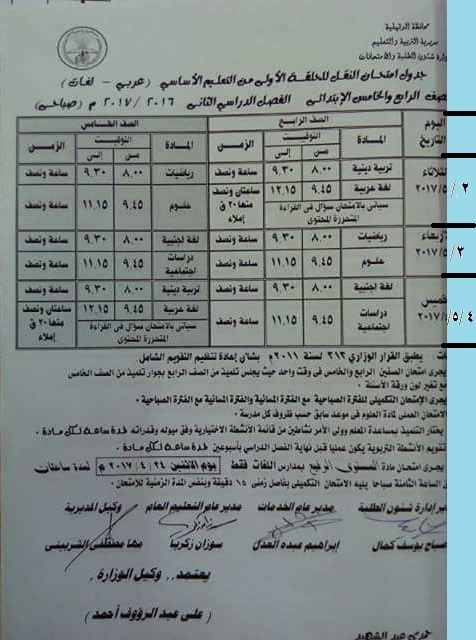 محافظة الدقهلية
مديرية التربية والتعليم
إدارة شئون الطلبة والامتحانات
جدول امتحان النقل للحلقة الأولى من التعليم الأساسي (عربي - لغات)
الصف الرابع والخامس الإبتدائى الفصل الدراسي الثانى ٢٠١٦ / ٢٠١٧ م (صباحى)
اليوم التاريخ الصف الرابع الصف الخامس
المادة التوقيت الزمن المادة التوقيت الزمن
من إلى من إلى
الثلاثاء ٢ /٢٠١٧/٥ تربية دينية ٨.٠٠ ٩.٣٠ ساعة ونصف رياضيات ٨.٠٠ ٩.٣٠ ساعة ونصف
لغة عربية ٩.٤٥ ١٢.١٥ ساعتان ونصف منها ٢٠ ق إملاء علوم ٩.٤٥ ١١.١٥ ساعة ونصف
سيأتى بالامتحان سؤال فى القراءة المتحررة المحتوى
الأربعاء ٣ /٢٠١٧/٥ رياضيات ٨.٠٠ ٩.٣٠ ساعة ونصف لغة اجنبية ٨.٠٠ ٩.٣٠ ساعة ونصف
علوم ٩.٤٥ ١١.١٥ ساعة ونصف دراسات اجتماعية ٩.٤٥ ١١.١٥ ساعة ونصف
الخميس ٤ /٥/ لغة اجنبية ٨.٠٠ ٩.٣٠ ساعة ونصف تربية دينية ٨.٠٠ ٩.٣٠ ساعة ونصف
دراسات اجتماعية ٩.٤٥ ١١.١٥ ساعة ونصف لغة عربية ٩.٤٥ ١٢.١٥ ساعتان ونصف منها ٢٠ ق إملاء
سيأتى بالامتحان سؤال فى القراءة المتحررة المحتوى
يطبق القرار الوزاري ٣١٣ لسنة ٢٠١١م بشأن إعادة تنظيم التقويم الشامل
يجرى امتحان الصفين الرابع والخامس فى وقت واحد حيث يجلس تلميذ من الصف الرابع بجوار تلميذ من الصف الخامس
مع تغير لون ورقة الأسئلة
يجرى الإمتحان التكميلى للفترة الصباحية مع الفترة المسائية والفترة المسائية مع الفترة الصباحية
الامتحان العملى لمادة العلوم فى موعد سابق حسب ظروف كل مدرسة
يختار التلميذ بمساعدة المعلم وولى الأمر نشاطين من قائمة الأنشطة الاختيارية وفق ميوله وقدراته لمدة ساعة لكل مادة
تقويم الأنشطة التربوية يكون عمليا قبل نهاية الفصل الدراسي بأسبوعين لمدة ساعة لكل مادة
يجرى امتحان مادة المستوى الرفيع بمدارس اللغات فقط يوم الاثنين ٢٤ / ٤ / ٢٠١٧ م لمدة ساعتان
الساعة الثامنة صباحا يليه الامتحان التكميلى بفاصل زمنى ١٥ دقيقة وبنفس المدة الزمنية للامتحان
مدير إدارة شئون الطلبة مدير عام الخدمات مدير عام التعليم العام وكيل المديرية
صباح يوسف كمال إبراهيم عبده العدل سوزان زكريا مها مصطفى الشربينى
يعتمد.. وكيل الوزارة
(على عبد الرؤوف أحمد)